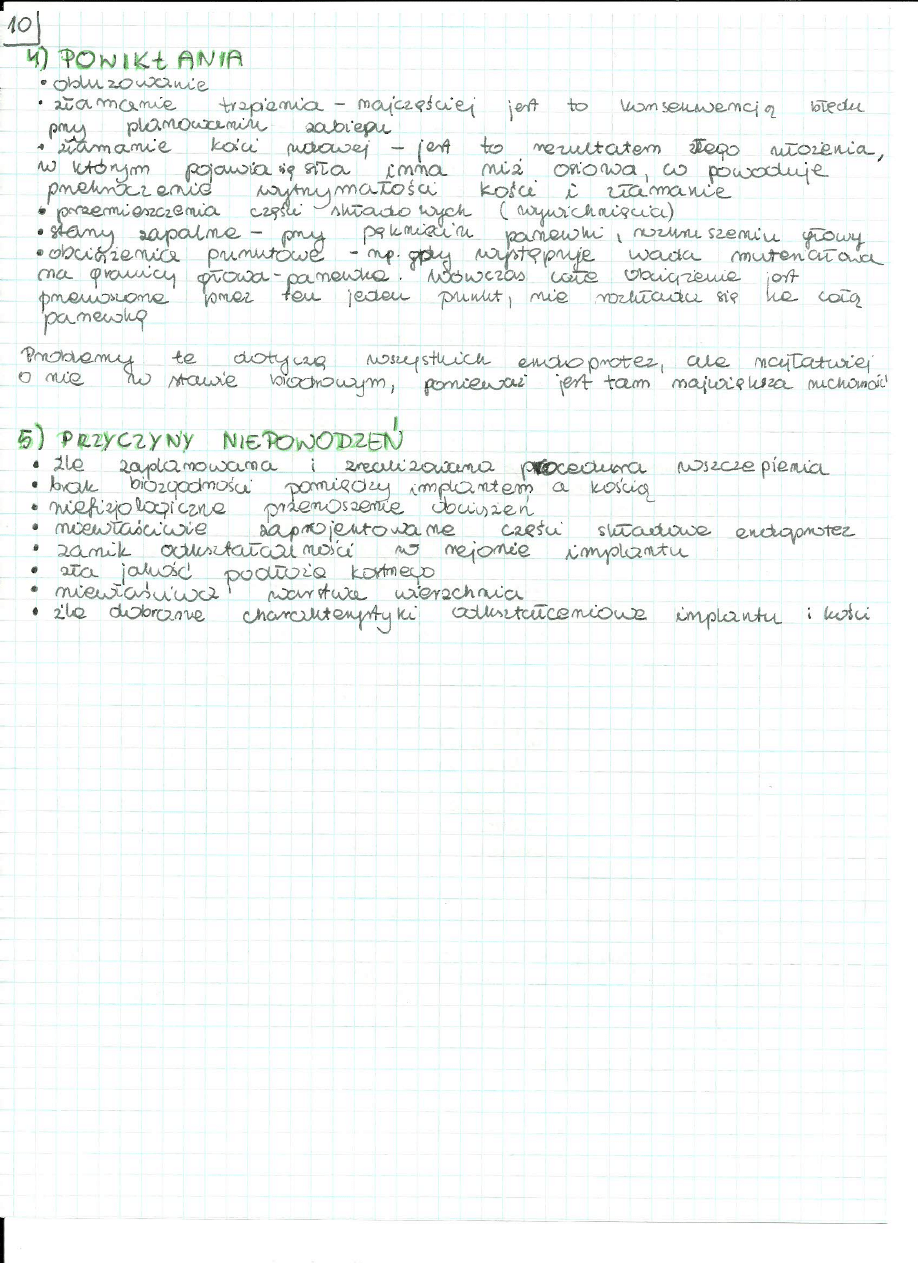 10
4) POWIKŁANIA
• obluzowanie
• złamanie trzpienia – najczęściej jest to konsekwencją błędu
przy planowaniu zabiegu
• złamanie kości udowej – jest to rezultatem złego ułożenia,
w którym pojawia się siła inna niż osiowa, co powoduje
przekroczenie wytrzymałości kości i złamanie
• przemieszczenia części składowych (wywichnięcia)
• stany zapalne – przy pęknięciu panewki, rozkruszeniu głowy
• obciążenia punktowe – np. gdy występuje wada materiałowa
na granicy głowa-panewka. Wówczas całe obciążenie jest
przenoszone przez ten jeden punkt, nie rozkłada się na całą
panewkę
Problemy te dotyczą wszystkich endoprotez, ale najłatwiej
o nie w stawie biodrowym, ponieważ jest tam największa ruchomość
5) PRZYCZYNY NIEPOWODZEŃ
• źle zaplanowana i zrealizowana procedura wszczepienia
• brak biozgodności pomiędzy implantem a kością
• niefizjologiczne przenoszenie obciążeń
• niewłaściwie zaprojektowane części składowe endoprotez
• zanik odkształcalności w rejonie implantu
• zła jakość podłoża kostnego
• niewłaściwa warstwa wierzchnia
• źle dobrane charakterystyki odkształceniowe implantu i kości